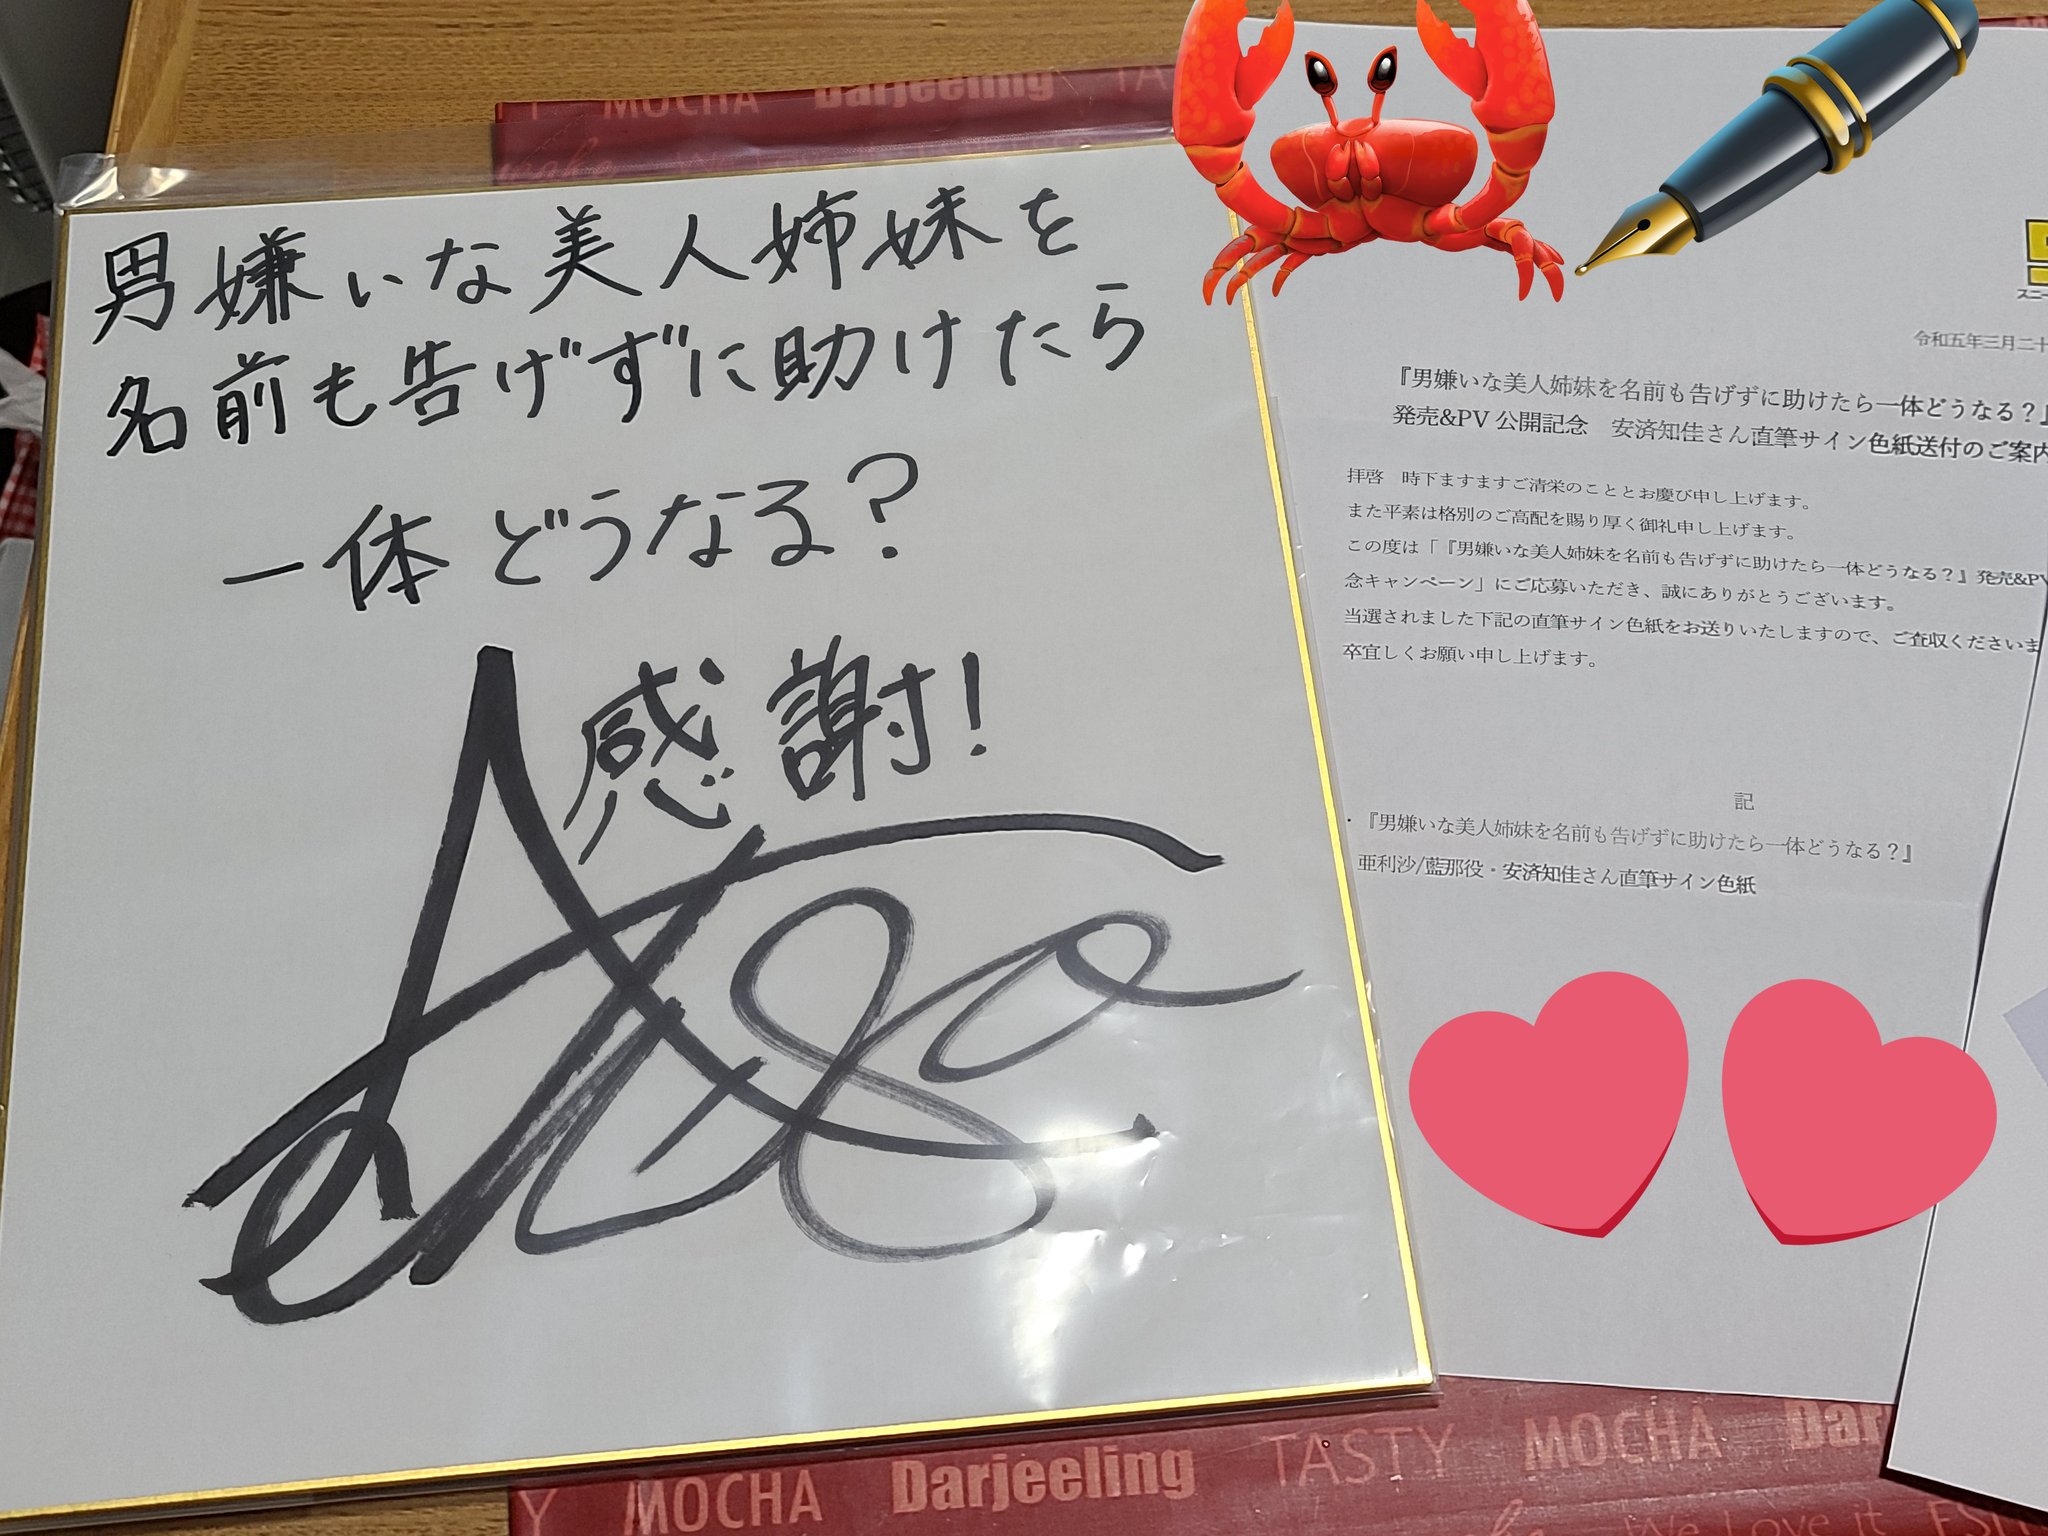 男嫌いな美人姉妹を
名前も告げずに助けたら
一体どうなる?
感謝!
スニー
令和五年三月二十
『男嫌いな美人姉妹を名前も告げずに助けたら一体どうなる?』
発売&PV公開記念 安済知佳さん直筆サイン色紙送付のご案内
拝啓 時下ますますご清栄のこととお慶び申し上げます。
また平素は格別のご高配を賜り厚く御礼申し上げます。
この度は「『男嫌いな美人姉妹を名前も告げずに助けたら一体どうなる?』発売&PV
念キャンペーン」にご応募いただき、誠にありがとうございます。
当選されました下記の直筆サイン色紙をお送りいたしますので、ご査収くださいま
卒宜しくお願い申し上げます。
記
・『男嫌いな美人姉妹を名前も告げずに助けたら一体どうなる?』
亜利沙/藍那役・安済知佳さん直筆サイン色紙
TY MOCHA Darjeeling TA
Y MOCHA Darjeeling TASTY MOCHA Dar
We Love it ES